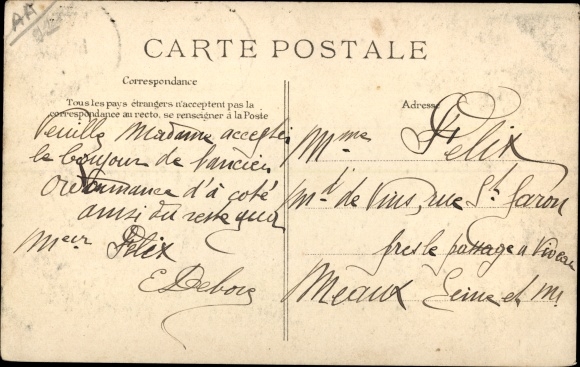 CARTE POSTALE
Correspondance
Tous les pays étrangers n'acceptent pas la
correspondance au recto, se renseigner à la Poste
Veuillez Madame accepter
le bonjour de l'ancien
Ordonnance d'à coté
ainsi du reste que
Mr Félix
E Debou
Adresse
Mme Félix
Md de Vins, rue St Faron
pres le passage a Niveau
Meaux Seine et M.